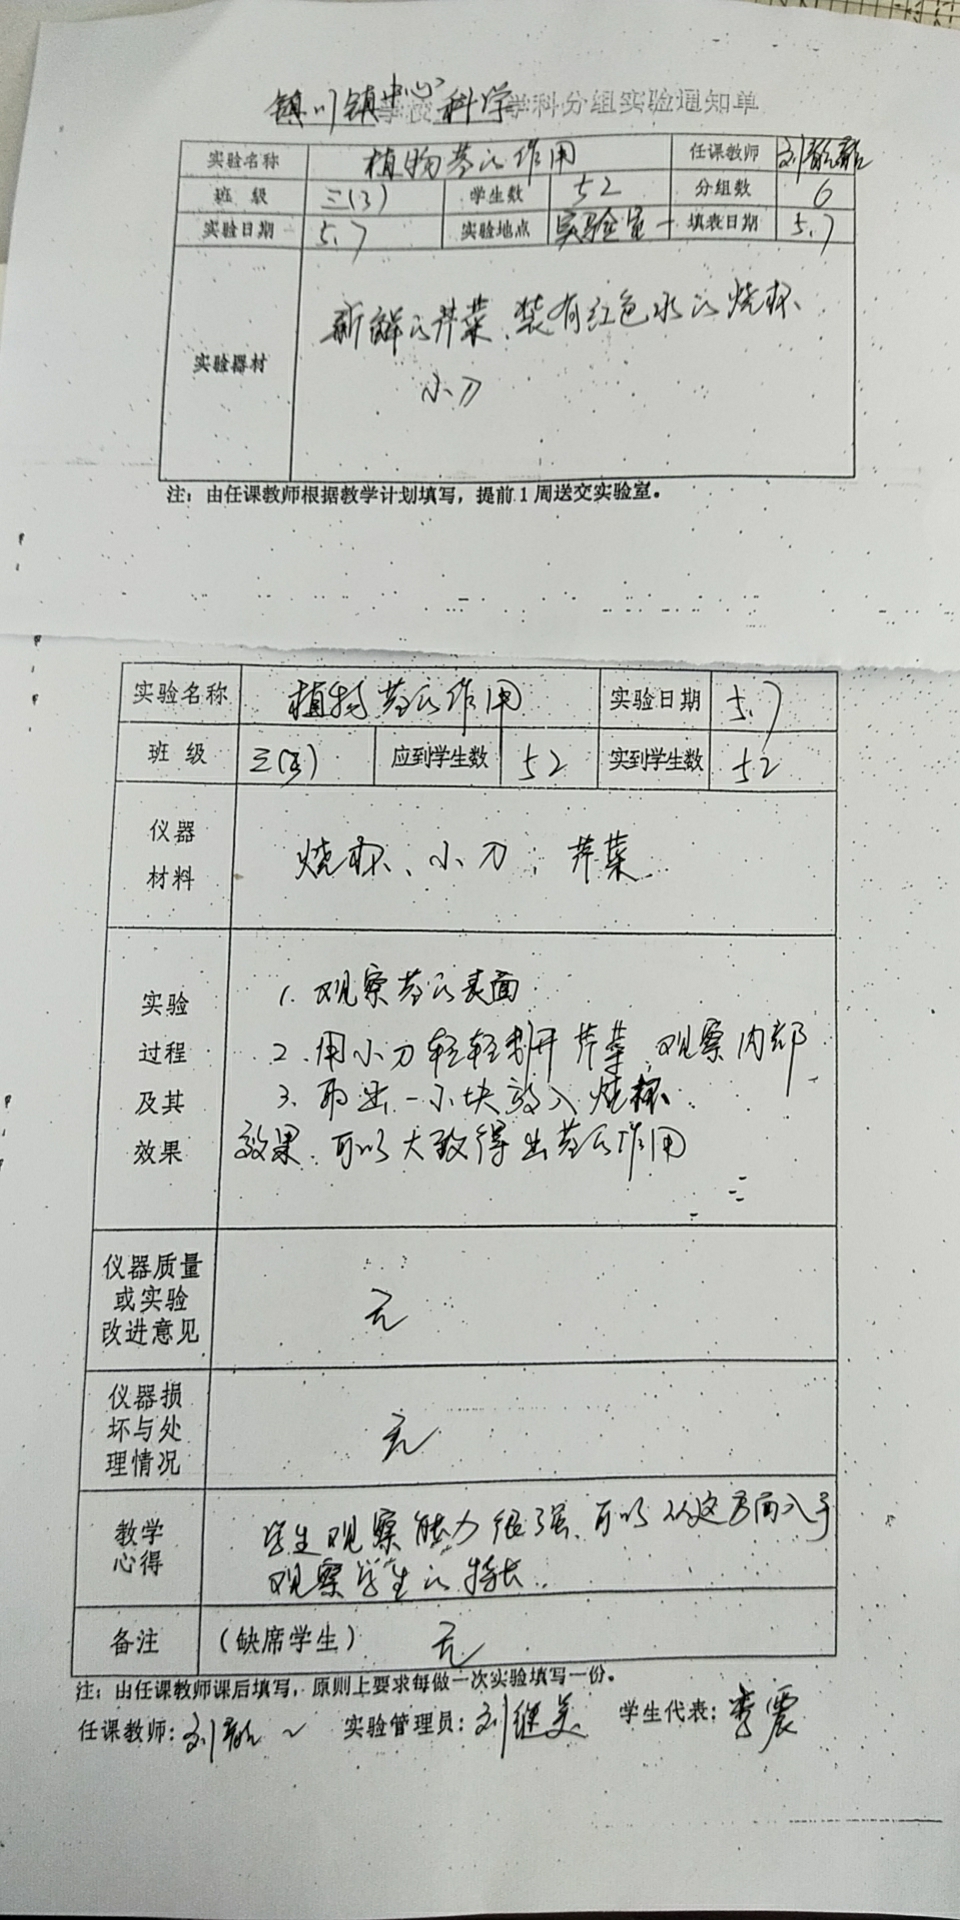 镇川镇中心学校 科学 学科分组实验通知单
实验名称 植物茎的作用 任课教师 刘
班 级 三(3) 学生数 52 分组数 6
实验日期 5.7 实验地点 实验室一 填表日期 5.7
实验器材 新鲜的芹菜、装有红色水的烧杯、
小刀
注：由任课教师根据教学计划填写，提前1周送交实验室。
实验名称 植物茎的作用 实验日期 5.7
班 级 三( ) 应到学生数 52 实到学生数 52
仪器
材料
烧杯、小刀、芹菜
实验
过程
及其
效果
1. 观察茎的表面
2. 用小刀轻轻割开芹菜,观察内部
3. 取出一小块放入烧杯.
效果、可以大致得出茎的作用
仪器质量
或实验
改进意见
无
仪器损
坏与处
理情况
无
教学
心得
学生观察能力很强,可以从这方面入手
观察学生的特长.
备注 （缺席学生） 无
注：由任课教师课后填写，原则上要求每做一次实验填写一份。
任课教师：刘 实验管理员：刘继美 学生代表：李震